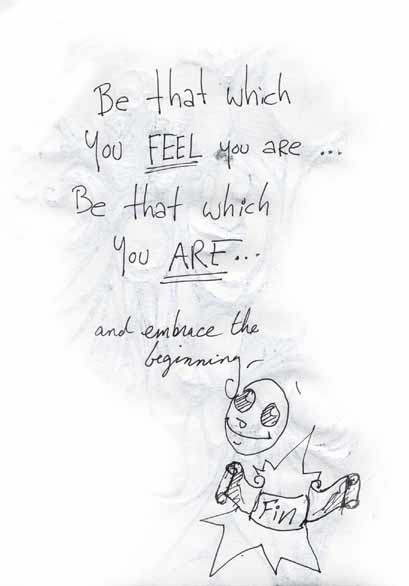 Be that which
You FEEL you are ...
Be that which
you ARE...
and embrace the
beginning
Fin